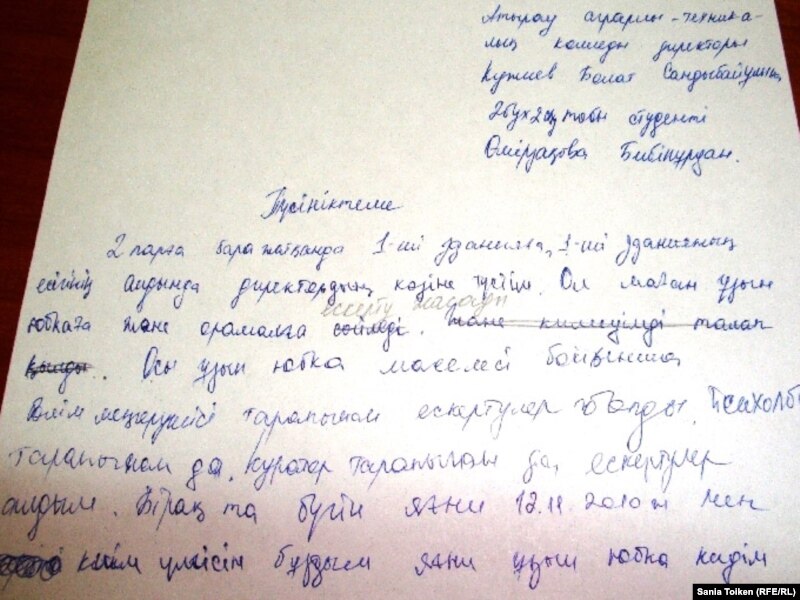 Атырау аграрлы-техника-
лық колледы директоры
Кужиев Болат Сандыбайұлына
2бух2ау тобы студенті
Өмірзақова Бибінұрдан.
Түсініктеме
2 парға бара жатқанда 1-ші зданияға, 1-ші зданияның
есігінің алдында директордың көзіне түстім. Ол маған ұзын
ескерту жасады
юбкаға және орамалға сөйледі. және кимеуімді талап
қылды. Осы ұзын юбка мәселесі бойынша
Бөлім меңгерушісі тарапынан ескертулер болды, Психолог
тарапынан да, куратор тарапынан да ескертулер
алдым. Бірақ та бүгін яғни 12.11.2010ж мен
киім үлгісін бұздым яғни ұзын юбка кидім
Sania Toiken (RFE/RL)